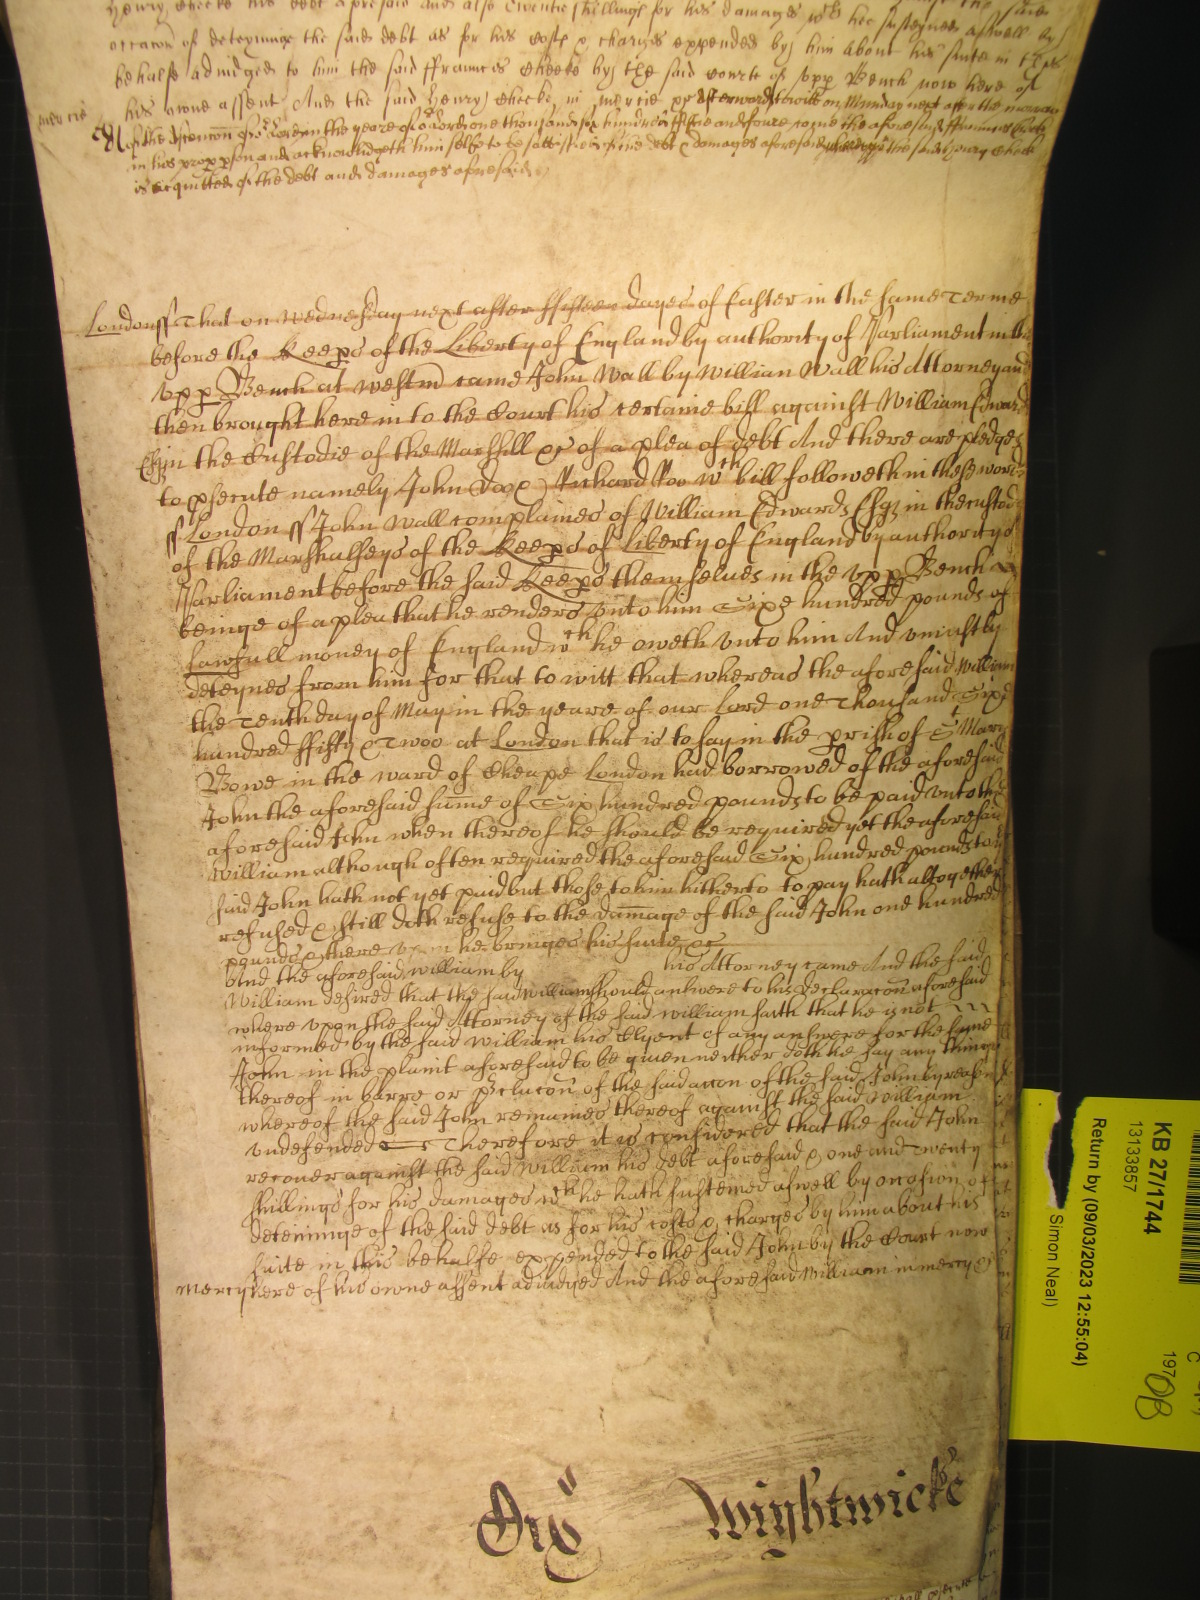 Henry Cheeke his debt aforesaid and also Twentie shillings for his damages wch hee susteyned aswell by
occacon of deteyninge the said debt as for his costs & charges expended by him about his suite in this
behalfe adiudged to him the said ffrauncis Cheeke by the said Courte of vpp Bench now here of
mercie his owne assent And the said Henry Cheeke in mercie &c afterwards towitt on Munday next after the morrow
of the Ascencon of or Lord in the yeare of or Lord one thousand six hundred fiftie and foure came the aforesaid ffrauncis Cheeke
in his prop pson and acknowledgeth him selfe to be satisfied of the debt & damages aforesaid the said Henry Cheeke
is acquitted of the debt and damages aforesaid
London ss That on wednesday next after ffifteen dayes of Easter in the same Terme
before the Keeps of the Liberty of England by authority of Parliament in the
vpp Bench at westm came John Wall by William Wall his Attorney and
then brought here in to the Court his certaine bill against William Edwards
Esqz in the Custodie of the Marshall &c of a plea of debt And there are pledges
to psecute namely John Doo & Richard Roo wch bill followeth in these words
ss London ss John Wall complaines of William Edwards Esqz in the custody
of the Marshalseys of the Keeps of Liberty of England by authority of
Parliament before the said Keeps themselues in the vpp Bench
beinge of a plea that he renders vnto him Sixe hundred pounds of
Lawfull money of England wch he oweth vnto him And vniustly
deteynes from him for that to witt that whereas the aforesaid William
the Tenth day of May in the yeare of our Lord one Thousand Sixe
hundred ffifty & Twoo at London that is to say in the prish of St Mary
Bowe in the ward of Cheape London had borrowed of the aforesaid
John the aforesaid sume of Six hundred pounds to be paid vnto the
aforesaid John when thereof he should be required yet the aforesaid
William although often required the aforesaid Six hundred pounds to
said John hath not yet paid but those to him hitherto to pay hath altogether
refused & still doth refuse to the damage of the said John one hundred
pounds & there vpon he bringes his suite &c
And the aforesaid william by his Attorney came And the said
William desired that the said William should answere to his declaracon aforesaid
where vpon the said Attorney of the said william saith that he is not
informed by the said William his Clyent of any answere for the same
John in the plaint aforesaid to be giuen neither doth he say any thinge
thereof in barre or pclucon of the said accon of the said John by reason
whereof the said John remaines thereof against the said William
vndefended Therefore it is considered that the said John
recouer against the said William his debt aforesaid & one and Twenty
shillings for his damages wch he hath susteined aswell by occasion of
deteininge of the said debt as for his costs & charges by him about his
suite in this behalfe expended to the said John by the Court now
Mercy here of his owne assent adiudged And the aforesaid William in mercy &c
Wightwicke
KB 27/1744
13133857
Return by (09/03/2023 12:55:04)
Simon Neal)